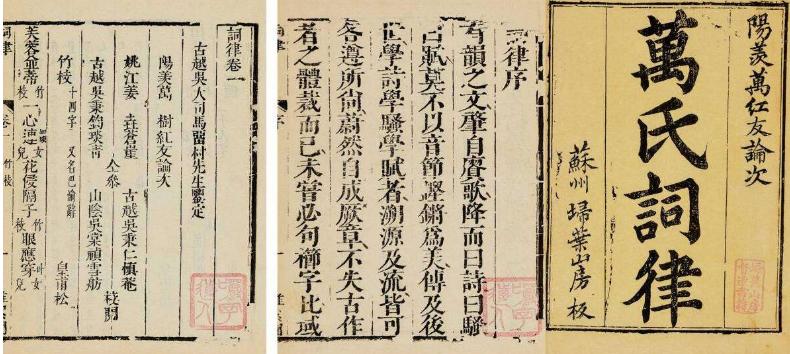 陽羨萬红友論次
萬氏詞律
蘇州 埽葉山房 板
詞律序
有韻之文肇自賡歌降而曰詩曰騷
曰賦莫不以音節鏗鏘爲美傳及後
世學詩學騷學賦者溯源及流皆可
各遵所尚蔚然自成厥章不失古作
者之體裁而已未嘗必句櫛字比或
詞律卷一
古越吳大司馬留村先生鑒定
陽羨萬 樹紅友論次
姚江姜 垚蒼崖 仝叅 古越吳秉仁慎菴 校閱
古越吳秉鈞琰青 山陰吳棠禎雪舫
竹枝 十四字 又名巴渝辭 皇甫松
芙蓉並蔕竹枝一心連女兒花侵隔子竹枝眼應穿女兒